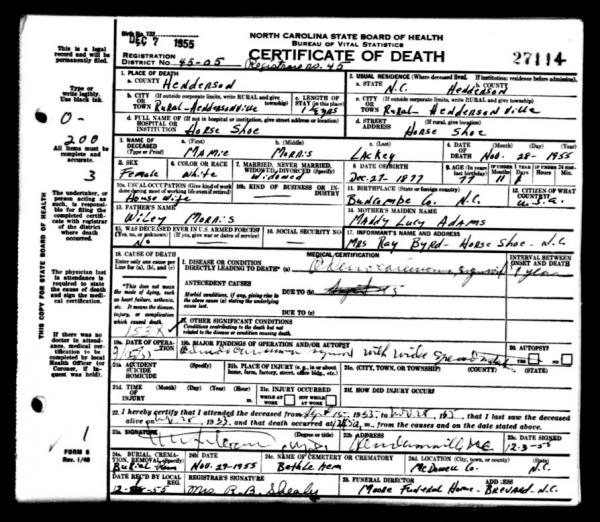 This is a legal record and will be permanently filed.
Type or write legibly. Use black ink.
0-
200
All items must be complete and accurate.
3
The undertaker, or person acting as such, is responsible for filing the completed certificate with registrar of the district where death occurred.
The physician last in attendance is required to state the cause of death and sign the medical certification.
If there was no doctor in attendance, medical certification to be completed by local Health Officer (or Coroner, if inquest was held).
1
FORM 8
Rev. 1/49
THIS COPY FOR STATE BOARD OF HEALTH
Birth No. 132
DEC 7 1955
NORTH CAROLINA STATE BOARD OF HEALTH
BUREAU OF VITAL STATISTICS
REGISTRATION DISTRICT NO. 45-05
CERTIFICATE OF DEATH
27114
Registrars no. 45
1. PLACE OF DEATH
a. COUNTY Henderson
2. USUAL RESIDENCE (Where deceased lived. If institution: residence before admission).
a. STATE N.C. b. COUNTY Henderson
b. CITY (If outside corporate limits, write RURAL and give township) OR TOWN Rural-Hendersonville
c. LENGTH OF STAY (in this place)
c. CITY (If outside corporate limits, write RURAL and give township) OR TOWN Rural Hendersonville
d. FULL NAME OF (If not in hospital or institution, give street address or location) HOSPITAL OR INSTITUTION Horse Shoe
d. STREET ADDRESS (If rural, give location) Horse Shoe
3. NAME OF DECEASED (Type or Print) a. (First) Mamie b. (Middle) Morris c. (Last) Lackey
4. DATE OF DEATH (Month) (Day) (Year) Nov. 28- 1955
5. SEX Female
6. COLOR OR RACE White
7. MARRIED, NEVER MARRIED, WIDOWED, DIVORCED (Specify) Widowed
8. DATE OF BIRTH Dec-27-1877
9. AGE (In years last birthday) 77 11
10a. USUAL OCCUPATION (Give kind of work done during most of working life, even if retired) House Wife
10b. KIND OF BUSINESS OR INDUSTRY
11. BIRTHPLACE (State or foreign country) Buncombe Co. N.C.
12. CITIZEN OF WHAT COUNTRY? U.S.A.
13. FATHER'S NAME
Wiley Morris
14. MOTHER'S MAIDEN NAME
Mandy Lucy Adams
15. WAS DECEASED EVER IN U.S. ARMED FORCES? (Yes, no, or unknown) (If yes, give war or dates of service) No
16. SOCIAL SECURITY NO.
17. INFORMANT'S NAME AND ADDRESS
Mrs Ray Byrd- Horse Shoe- N.C
18. CAUSE OF DEATH
Enter only one cause per line for (a), (b), and (c)
MEDICAL CERTIFICATION
INTERVAL BETWEEN ONSET AND DEATH
I. DISEASE OR CONDITION DIRECTLY LEADING TO DEATH* (a) Adenocarcinoma, sigmoid
*This does not mean the mode of dying, such as heart failure, asthenia, etc. It means the disease, injury, or complication which caused death.
ANTECEDENT CAUSES
Morbid conditions, if any, giving rise to the above cause (a) stating the underlying cause last.
DUE TO (b)
DUE TO (c)
153X
II. OTHER SIGNIFICANT CONDITIONS
Conditions contributing to the death but not related to the disease or condition causing death.
19a. DATE OF OPERATION
19b. MAJOR FINDINGS OF OPERATION AND/OR AUTOPSY
Adenocarcinoma sigmoid with wide spread
20. AUTOPSY?
YES NO
21a. ACCIDENT SUICIDE HOMICIDE
21b. PLACE OF INJURY (e.g., in or about home, farm, factory, street, office bldg., etc.)
21c. (CITY, TOWN, OR TOWNSHIP) (COUNTY) (STATE)
21d. TIME OF INJURY (Month) (Day) (Year) (Hour)
21e. INJURY OCCURRED
WHILE AT WORK NOT WHILE AT WORK
21f. HOW DID INJURY OCCUR?
22. I hereby certify that I attended the deceased from Sept 15, 1953, to Nov. 28, that I last saw the deceased alive on, and that death occurred at m., from the causes and on the date stated above.
23a. SIGNATURE (Degree or title)
23b. ADDRESS Hendersonville N.C.
23c. DATE SIGNED 12-3-55
24a. BURIAL, CREMATION, REMOVAL (Specify) Burial
24b. DATE Nov. 29-1955
24c. NAME OF CEMETERY OR CREMATORY Bethlehem
24d. LOCATION (City, town, or county) (State) McDowell Co. N.C.
DATE REC'D BY LOCAL REG.
REGISTRAR'S SIGNATURE
Mrs. R. B. Shealy
25. FUNERAL DIRECTOR ADDRESS
Moore Funeral Home- Brevard- N.C.